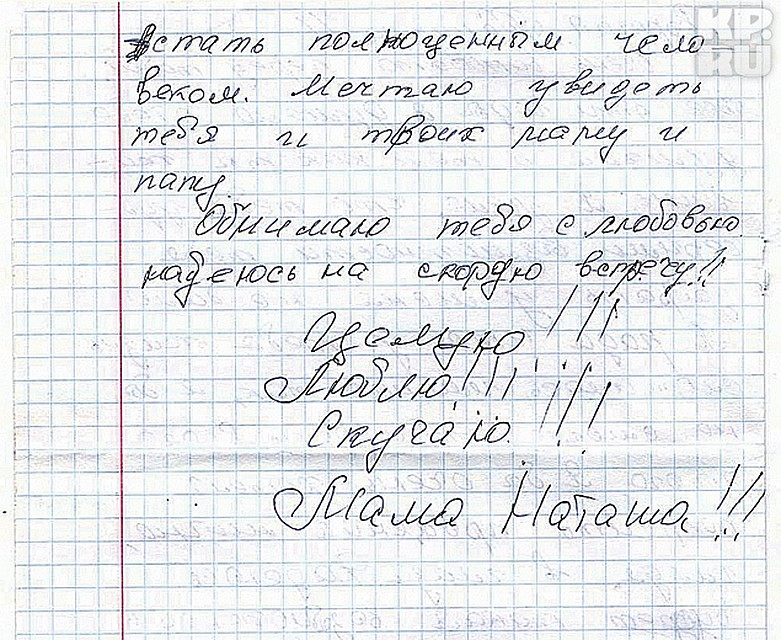 KP.RU
встать полноценным чело
веком. Мечтаю увидеть
тебя и твоих маму и
папу.
Обнимаю тебя с любовью
надеюсь на скорую встречу!!
Целую!!!
Люблю!!!!!!
Скучаю.
Мама Наташа!!!